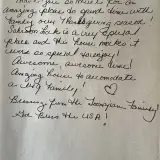 Thank you so much for an
amazing place to spend time with
family our Thanksgiving season!
is a very special
place and this house makes it
even so special to enjoy!
Awesome, awesome time!
Amazing house to accomodate
a big family!
from the family
the USA!